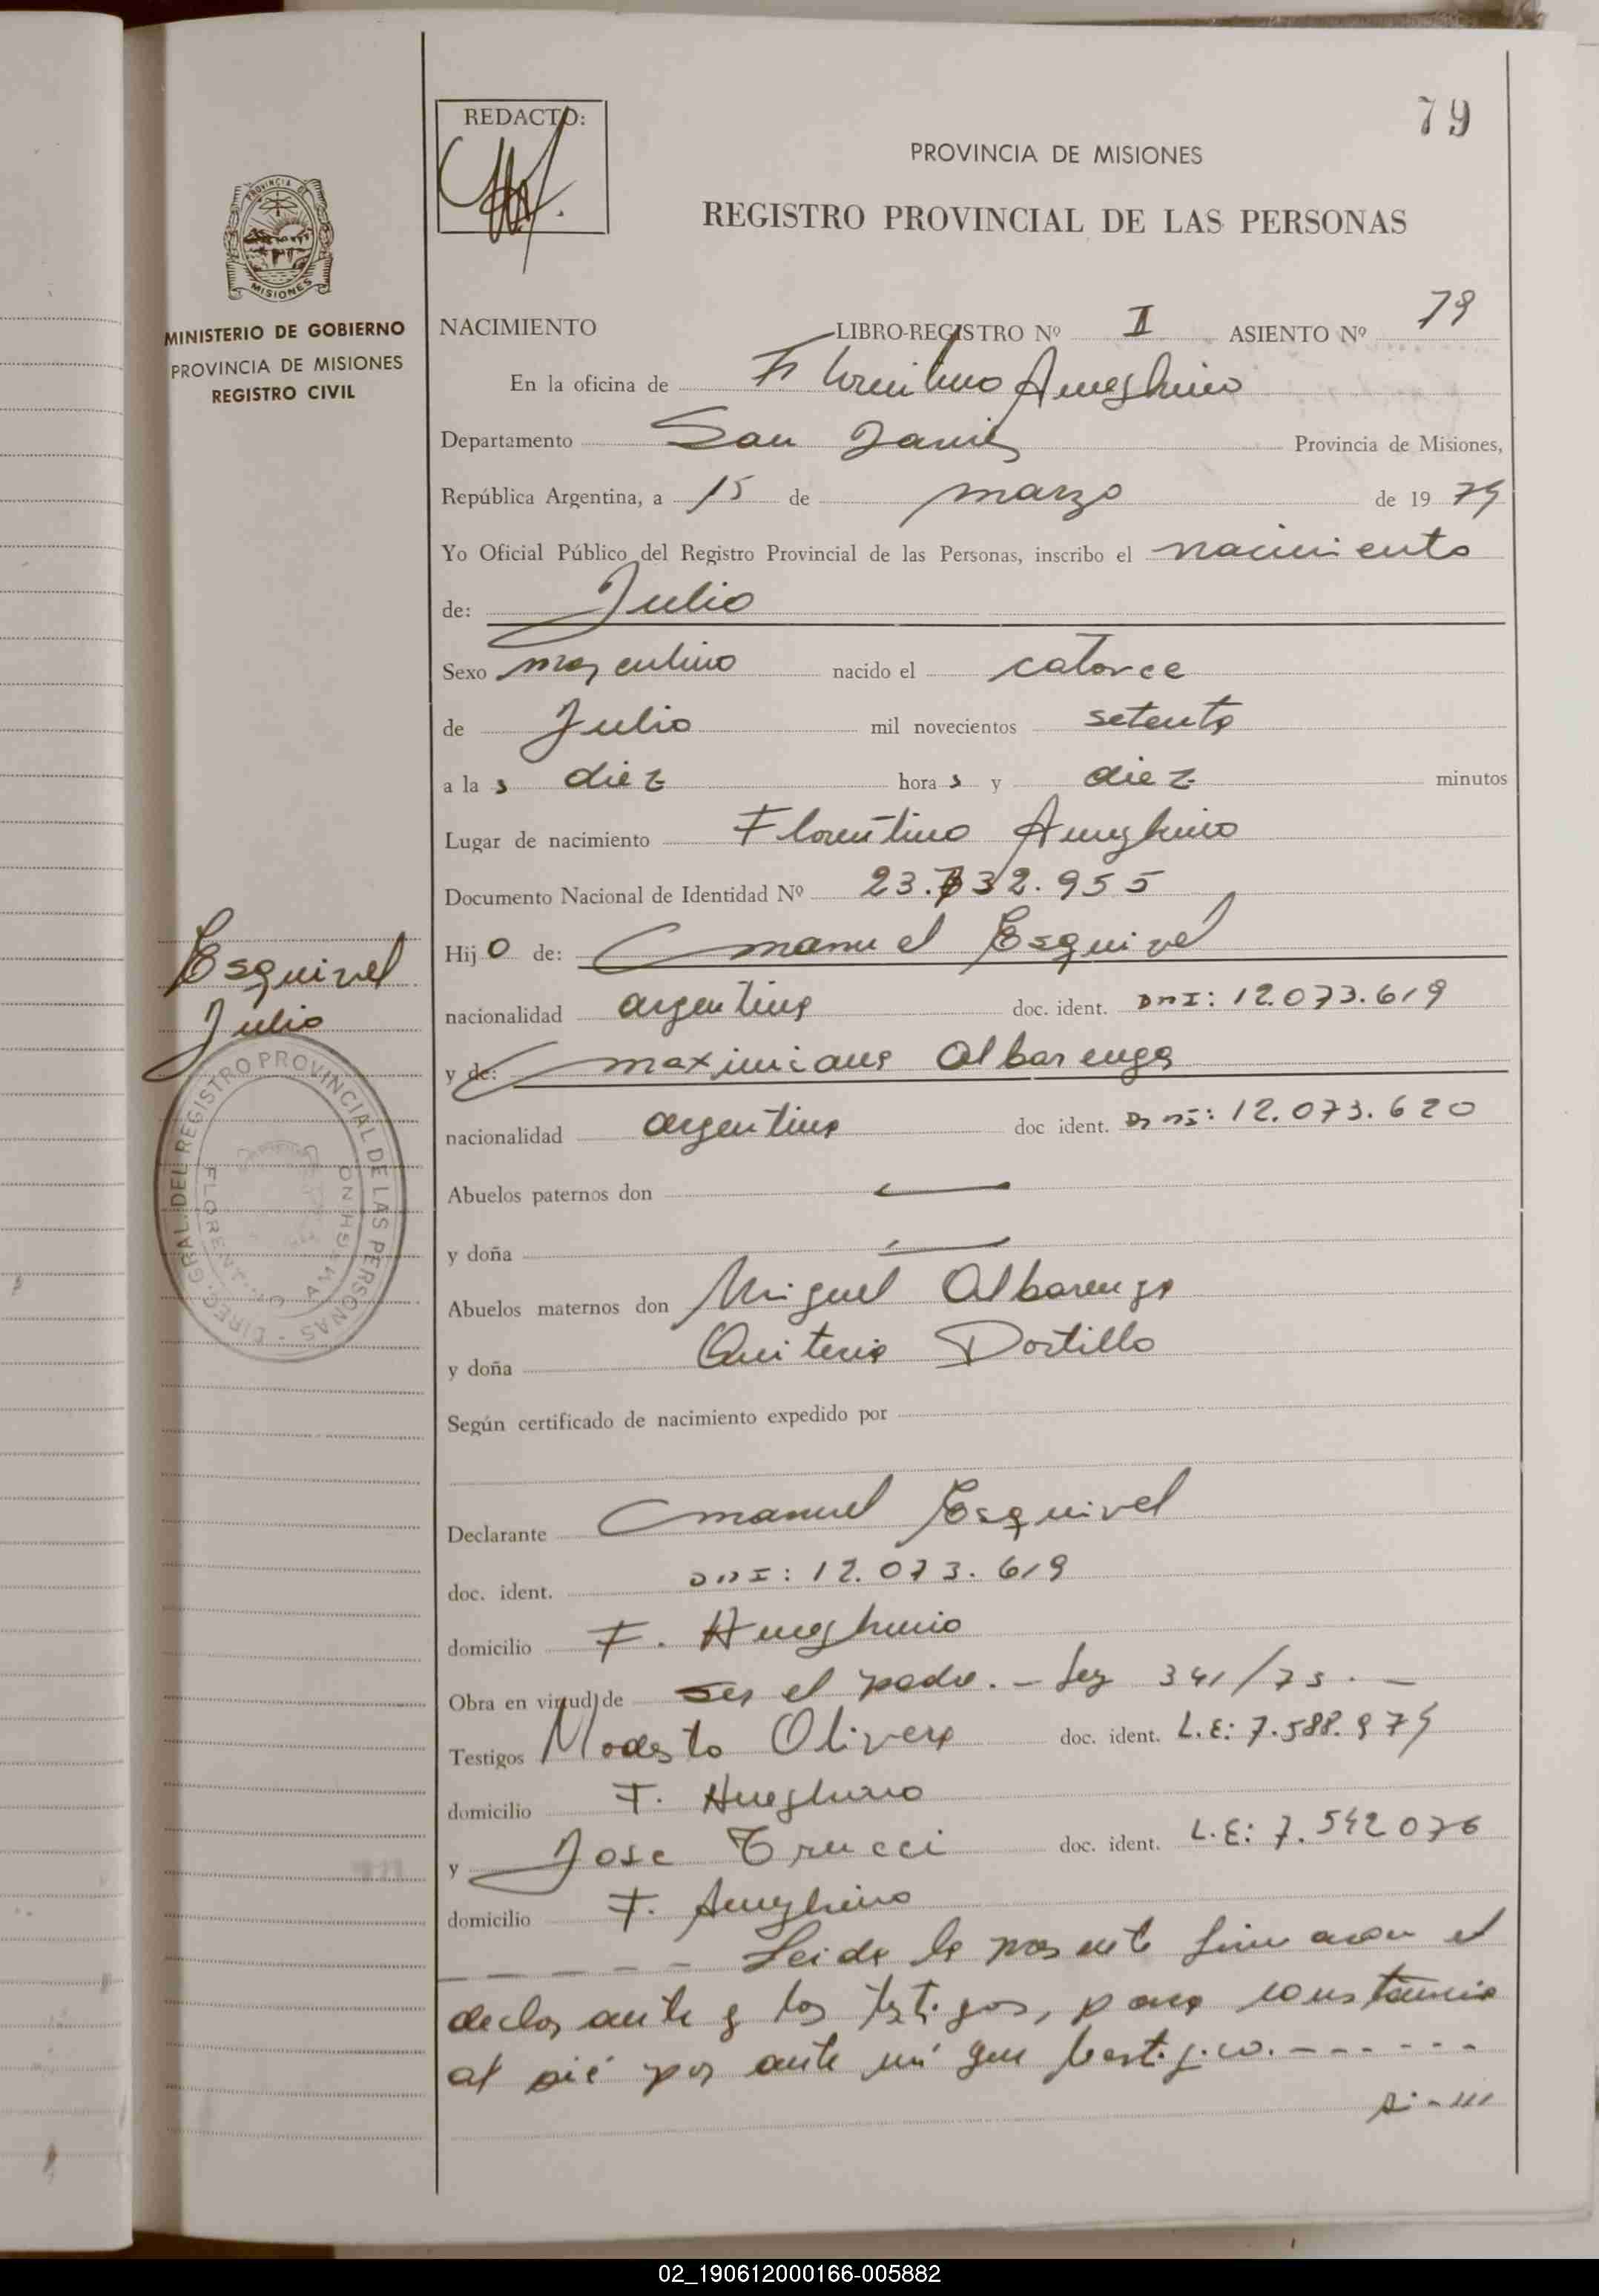 79
REDACTO:
PROVINCIA DE MISIONES
REGISTRO PROVINCIAL DE LAS PERSONAS
PROVINCIA DE
MISIONES
MINISTERIO DE GOBIERNO
PROVINCIA DE MISIONES
REGISTRO CIVIL
NACIMIENTO LIBRO-REGISTRO Nº II ASIENTO Nº 79
En la oficina de Florentino Ameghino
Departamento San Javier Provincia de Misiones,
República Argentina, a 15 de marzo de 19 74
Yo Oficial Público del Registro Provincial de las Personas, inscribo el nacimiento
de: Julio
Sexo masculino nacido el catorce
de Julio mil novecientos setenta
a la s diez hora s y diez minutos
Lugar de nacimiento Florentino Ameghino
Documento Nacional de Identidad Nº 23.732.955
Hij o de: manuel Esquivel
nacionalidad argentina doc. ident. DNI: 12.073.619
y de: maximiana Albarenga
nacionalidad argentina doc ident. DNI: 12.073.620
Abuelos paternos don
y doña
Abuelos maternos don Miguel Albarenga
y doña Quiteria Portillo
Según certificado de nacimiento expedido por
Declarante manuel Esquivel
doc. ident. DNI: 12.073.619
domicilio F. Ameghino
Obra en virtud de ser el padre. - Ley 341/73. -
Testigos Modesto Olivera doc. ident. L.E: 7.588.974
domicilio F. Ameghino
y Jose Trucci doc. ident. L.E: 7.542076
domicilio F. Ameghino
- - - - - Leida la presente firmaron el
declarante y los testigos, para constancia
al pié por ante mí que certifico. - - - - - -
Esquivel
Julio
DIREC. GRAL. DEL REGISTRO PROVINCIAL DE LAS PERSONAS
FLORENTINO AMEGHINO
02_190612000166-005882